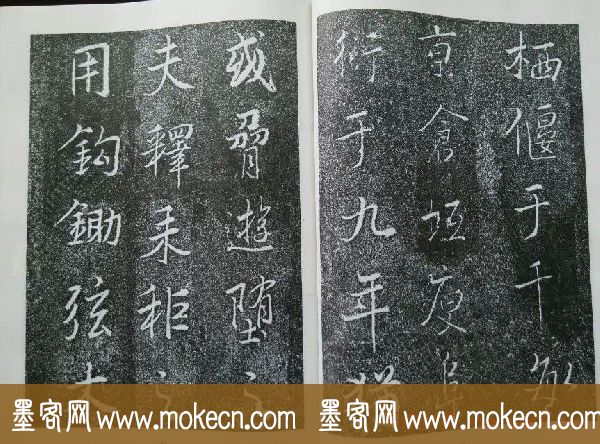 栖偃于千
京倉坻庾
衍于九年
或胥遊堕之
夫釋耒秬之
用鈎鋤弦木
墨客网 www.mokecn.com 墨客网 www.mokecn.com